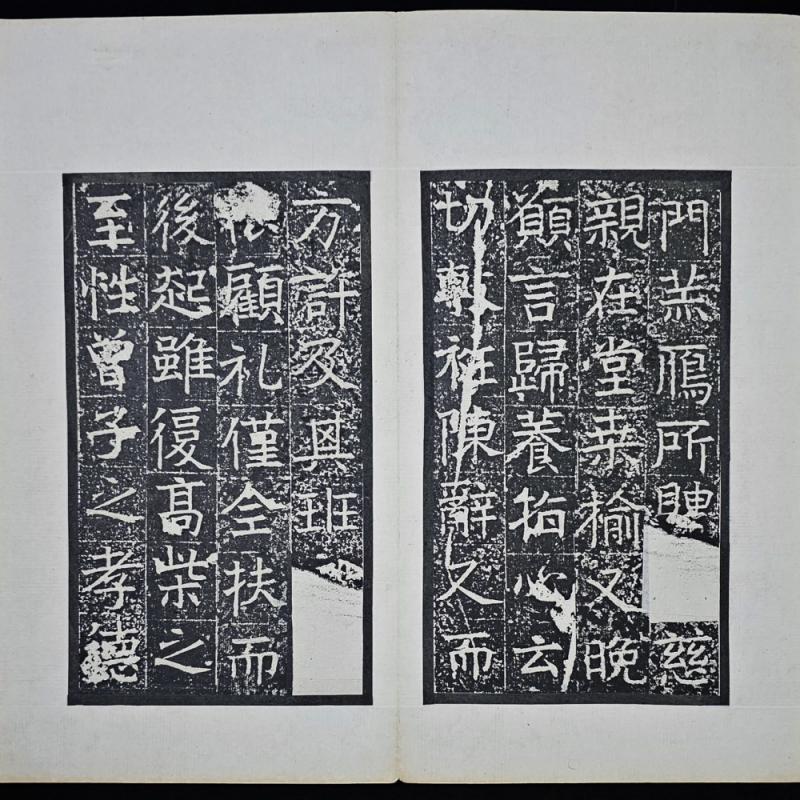 門羔鴈所聘慈
親在堂桑榆又晚
顧言歸養拓心云
切輒往陳辭久而
方許及其班
顧礼僅全扶而
後起雖復高柴之
至性曾子之孝德